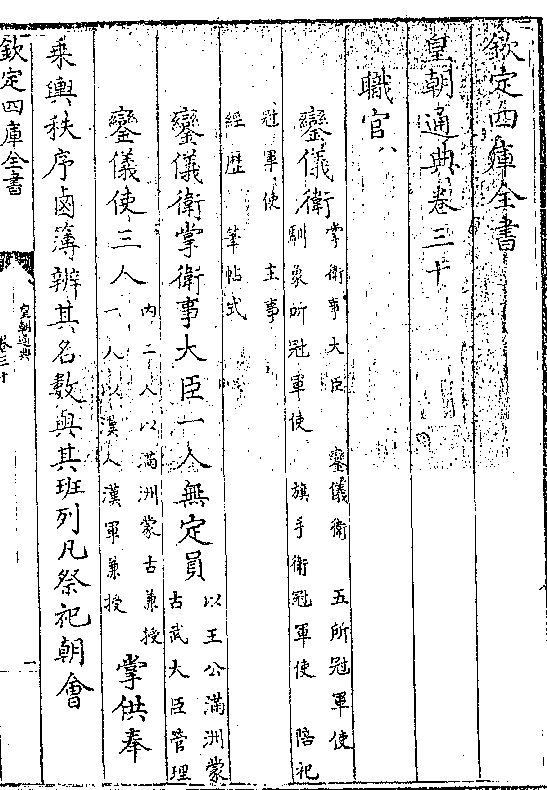 欽定四庫全書
皇朝通典卷三十
職官八
鑾儀衛掌衛事大臣　鑾儀衛　五所冠軍使
馴象所冠軍使　旗手衛冠軍使　陪祀
冠軍使　主事
經歷　筆帖式
鑾儀衛掌衛事大臣一人無定員以王公滿洲蒙
古武大臣管理
鑾儀使三人內二人以滿洲蒙古兼授
一人以漢人漢軍兼授掌供奉
乘輿秩序鹵簿辨其名數與其班列凡祭祀朝會
欽定四庫全書
皇朝通典
卷三十
一